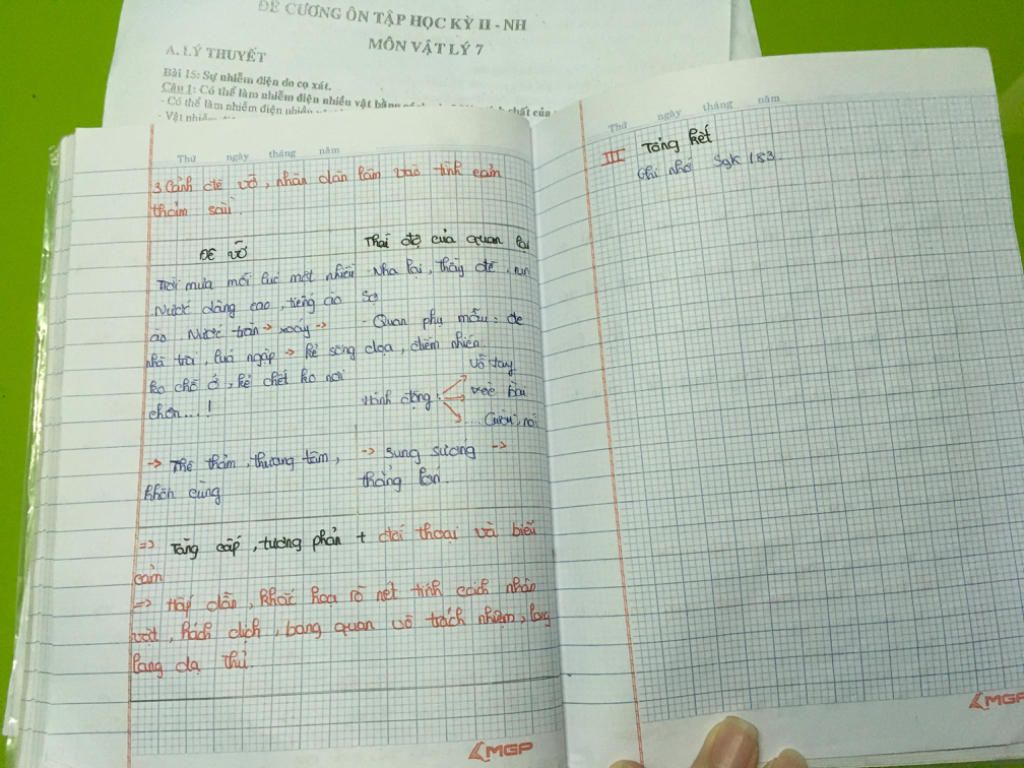 ĐỀ CƯƠNG ÔN TẬP HỌC KỲ II - NH
MÔN VẬT LÝ 7
A. LÝ THUYẾT
Bài 15: Sự nhiễm điện do cọ xát.
Câu 1: Có thể làm nhiễm điện nhiều vật bằng
- Có thể làm nhiễm điện
- Vật
chất của
Thứ ngày tháng năm
3. Cảnh đê vỡ, nhân dân lâm vào tình cảm
thảm sầu.
Đê vỡ
Trời mưa mỗi lúc một nhiều
Nước dâng cao, tiếng ào
ào. Nước tràn -> xoáy ->
nhà trôi, lúa ngập -> kẻ sống
ko chỗ ở, kẻ chết ko nơi
chôn...!
-> Thê thảm, thương tâm,
khốn cùng
Thái độ của quan lại
- Nha lại, thầy đề, run
sợ
- Quan phụ mẫu: đe
dọa, điềm nhiên.
Hành động:
vỗ tay
xòe bài
Cười, nói
-> Sung sướng ->
thắng lớn.
=> Tăng cấp, tương phản + đối thoại và biểu
cảm
=> Hấp dẫn, khắc họa rõ nét tính cách nhân
vật, hách dịch, bàng quan vô trách nhiệm, lòng
lang dạ thú.
MGP
Thứ ngày tháng năm
III Tổng kết
Ghi nhớ Sgk 183
MGP